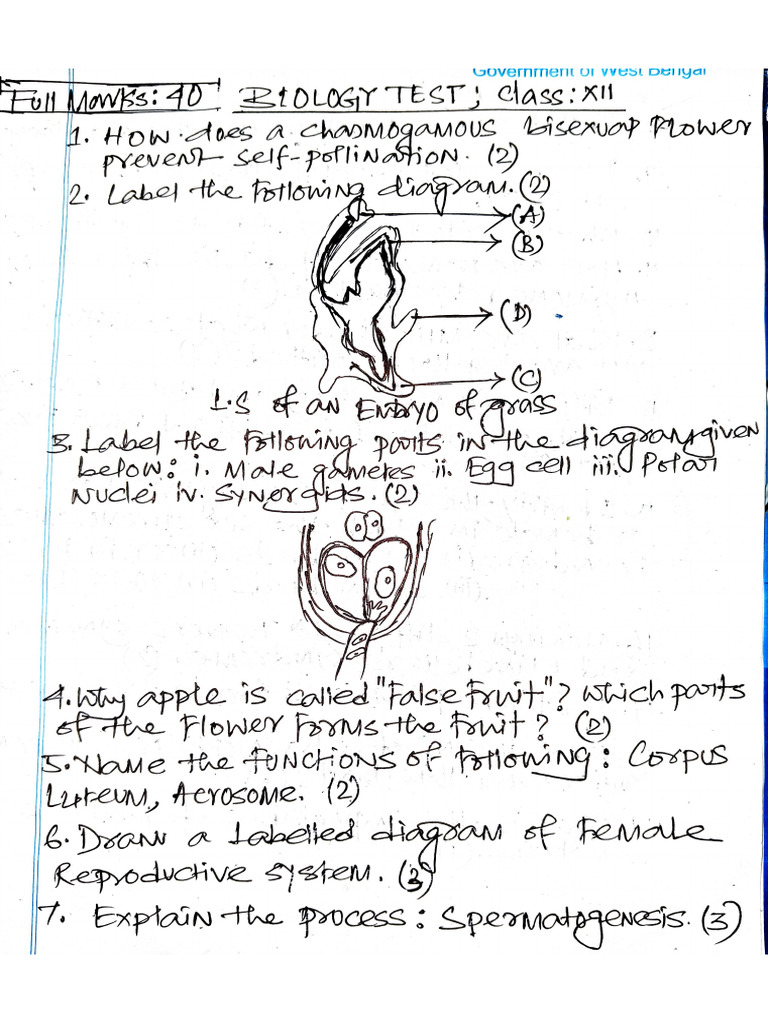 Government of West Bengal
Full Marks: 40 BIOLOGY TEST; Class: XII
1. How does a chasmogamous bisexual flower
prevent self-pollination. (2)
2. Label the following diagram. (2)
(A)
(B)
(D)
(C)
L.S of an Embryo of grass
3. Label the following parts in the diagram given
below: i. Male gametes ii. Egg cell iii. Polar
Nuclei iv. Synergids. (2)
4. Why apple is called "False Fruit"? Which parts
of the Flower Forms the Fruit? (2)
5. Name the functions of following: Corpus
Luteum, Acrosome. (2)
6. Draw a labelled diagram of Female
Reproductive system. (3)
7. Explain the process: Spermatogenesis. (3)